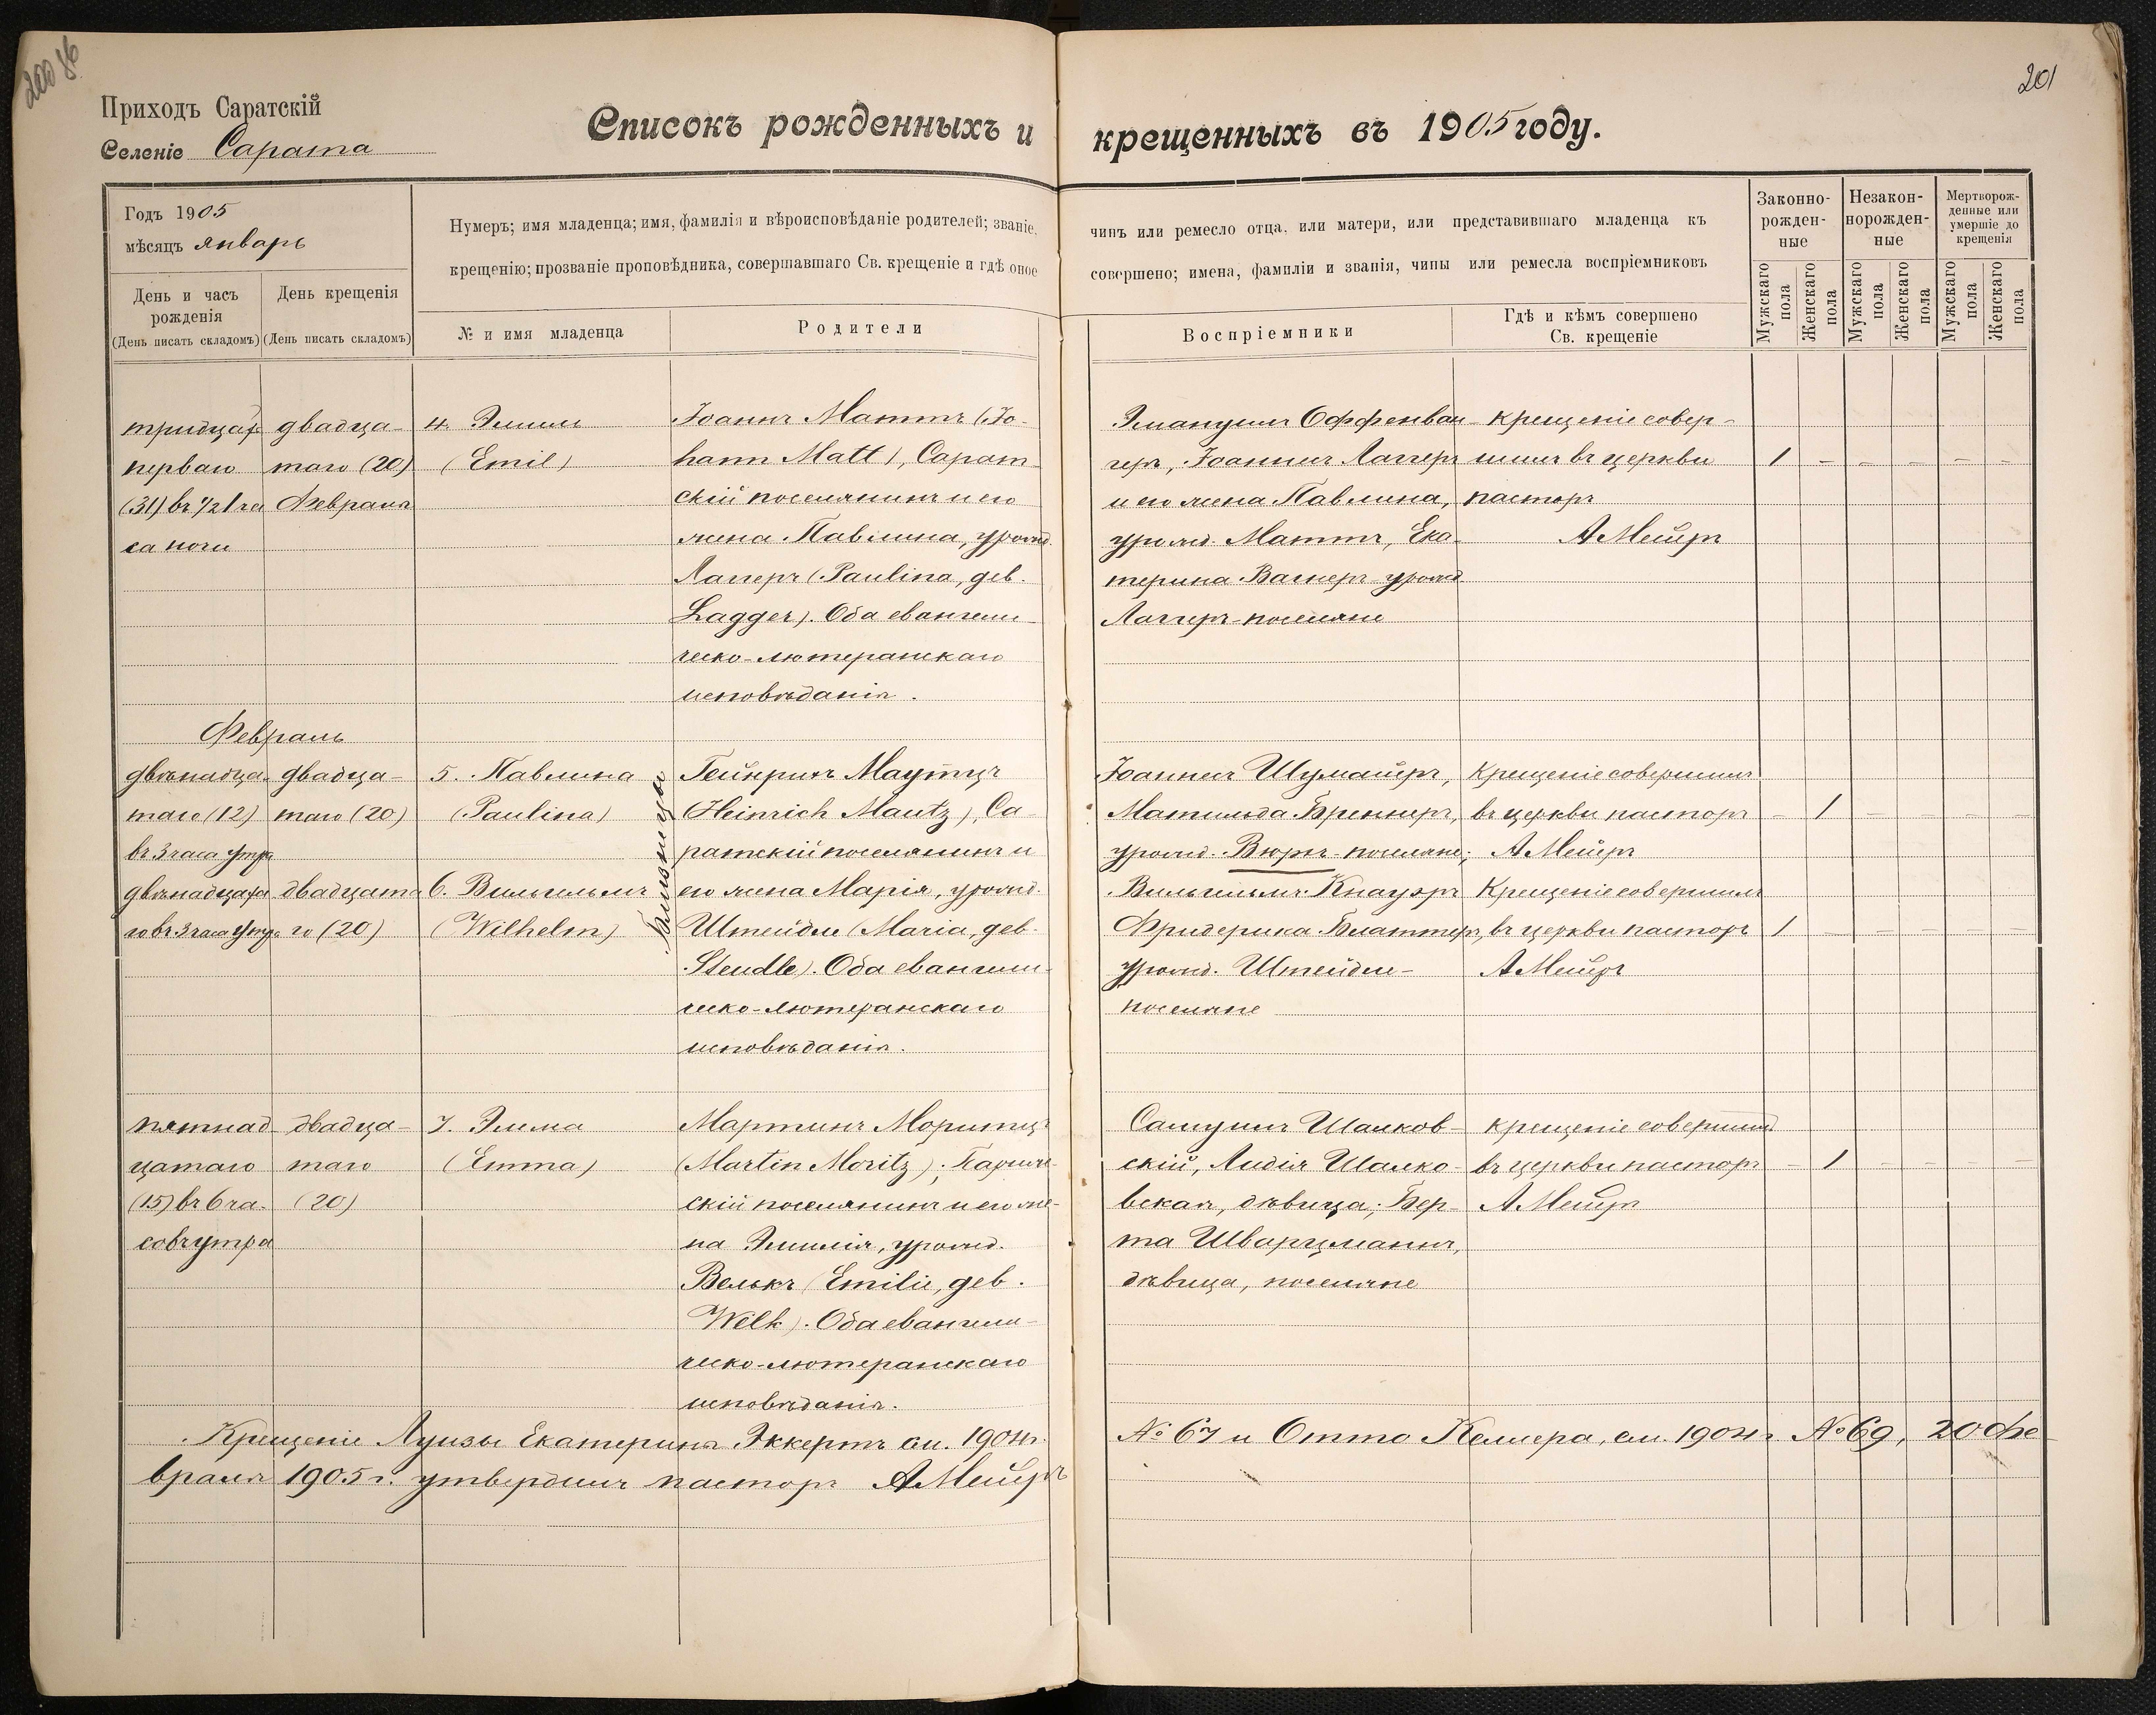 200 об
201
Приходъ Саратскій
Селеніе Сарата
Списокъ рожденныхъ и крещенныхъ въ 1905 году.
Годъ 1905
мѣсяцъ январь
Нумеръ; имя младенца; имя, фамилія и вѣроисповѣданіе родителей; званіе, чинъ или ремесло отца, или матери, или представившаго младенца къ
крещенію; прозваніе проповѣдника, совершавшаго Св. крещеніе и гдѣ оное совершено; имена, фамиліи и званія, чины или ремесла воспріемниковъ
День и часъ рожденія
(День писать складомъ)
День крещенія
(День писать складомъ)
№ и имя младенца
Родители
Воспріемники
Гдѣ и кѣмъ совершено
Св. крещеніе
Законно-
рожден-
ные
Незакон-
норожден-
ные
Мертворож-
денные или
умершіе до
крещенія
Мужскаго пола
Женскаго пола
Мужскаго пола
Женскаго пола
Мужскаго пола
Женскаго пола
тридцать
перваго
(31) въ ½1 ча
са ночи
двадца-
таго (20)
Февраля
4. Эмиль
(Emil)
Іоаннъ Маттъ (Jo-
hann Matt), Сарат-
скій поселянинъ и его
жена Павлина, урожд.
Лаггеръ (Paulina, geb.
Lagger). Оба евангели-
ческо-лютеранскаго
исповѣданія.
Эмануилъ Оффенван-
геръ, Іоаннъ Лаггеръ
и его жена Павлина,
урожд. Маттъ, Ека-
терина Вагнеръ урожд.
Лаггеръ-поселяне
крещеніе совер-
шилъ въ церкви
пасторъ
А Мейеръ
1 - - - - -
Февраль
двѣнадца-
таго (12)
въ 3 часа утра
двадца-
таго (20)
5. Павлина
(Paulina)
близнецы
Гейнрихъ Маутцъ
(Heinrich Mautz), Са-
ратскій поселянинъ и
его жена Марія, урожд.
Штейдле (Maria, geb.
Steudle). Оба евангели-
ческо-лютеранскаго
исповѣданія.
Іоаннесъ Шумайеръ,
Матильда Бреннеръ,
урожд. Вюрхъ-поселяне;
крещеніе совершилъ
въ церкви пасторъ
А Мейеръ
- 1 - - - -
двѣнадцата
го въ 3 часа утра
двадцата
го (20)
6. Вильгельмъ
(Wilhelm)
Вильгельмъ Кнауэръ
Фридерика Блаттеръ,
урожд. Штейдле-
поселяне
Крещеніе совершилъ
въ церкви пасторъ
А Мейеръ
1 - - - - -
пятнад-
цатаго
(15) въ 6 ча-
совъ утра
двадца-
таго
(20)
7. Эмма
(Emma)
Мартинъ Моритцъ
(Martin Moritz), Париж-
скій поселянинъ и его же-
на Эмилія, урожд.
Велькъ (Emilie, geb.
Welk). Оба евангели-
ческо-лютеранскаго
исповѣданія.
Самуилъ Шалков-
скій, Лидія Шалко-
вская, дѣвица; Бер-
та Шварцманнъ,
дѣвица, поселяне
крещеніе совершилъ
въ церкви пасторъ
А Мейеръ
- 1 - - - -
Крещеніе Луизы Екатерины Эккертъ см. 1904 г. № 67 и Отто Келлера, см. 1904 г. № 69, 20 фе-
враля 1905 г. утвердилъ пасторъ А Мейеръ